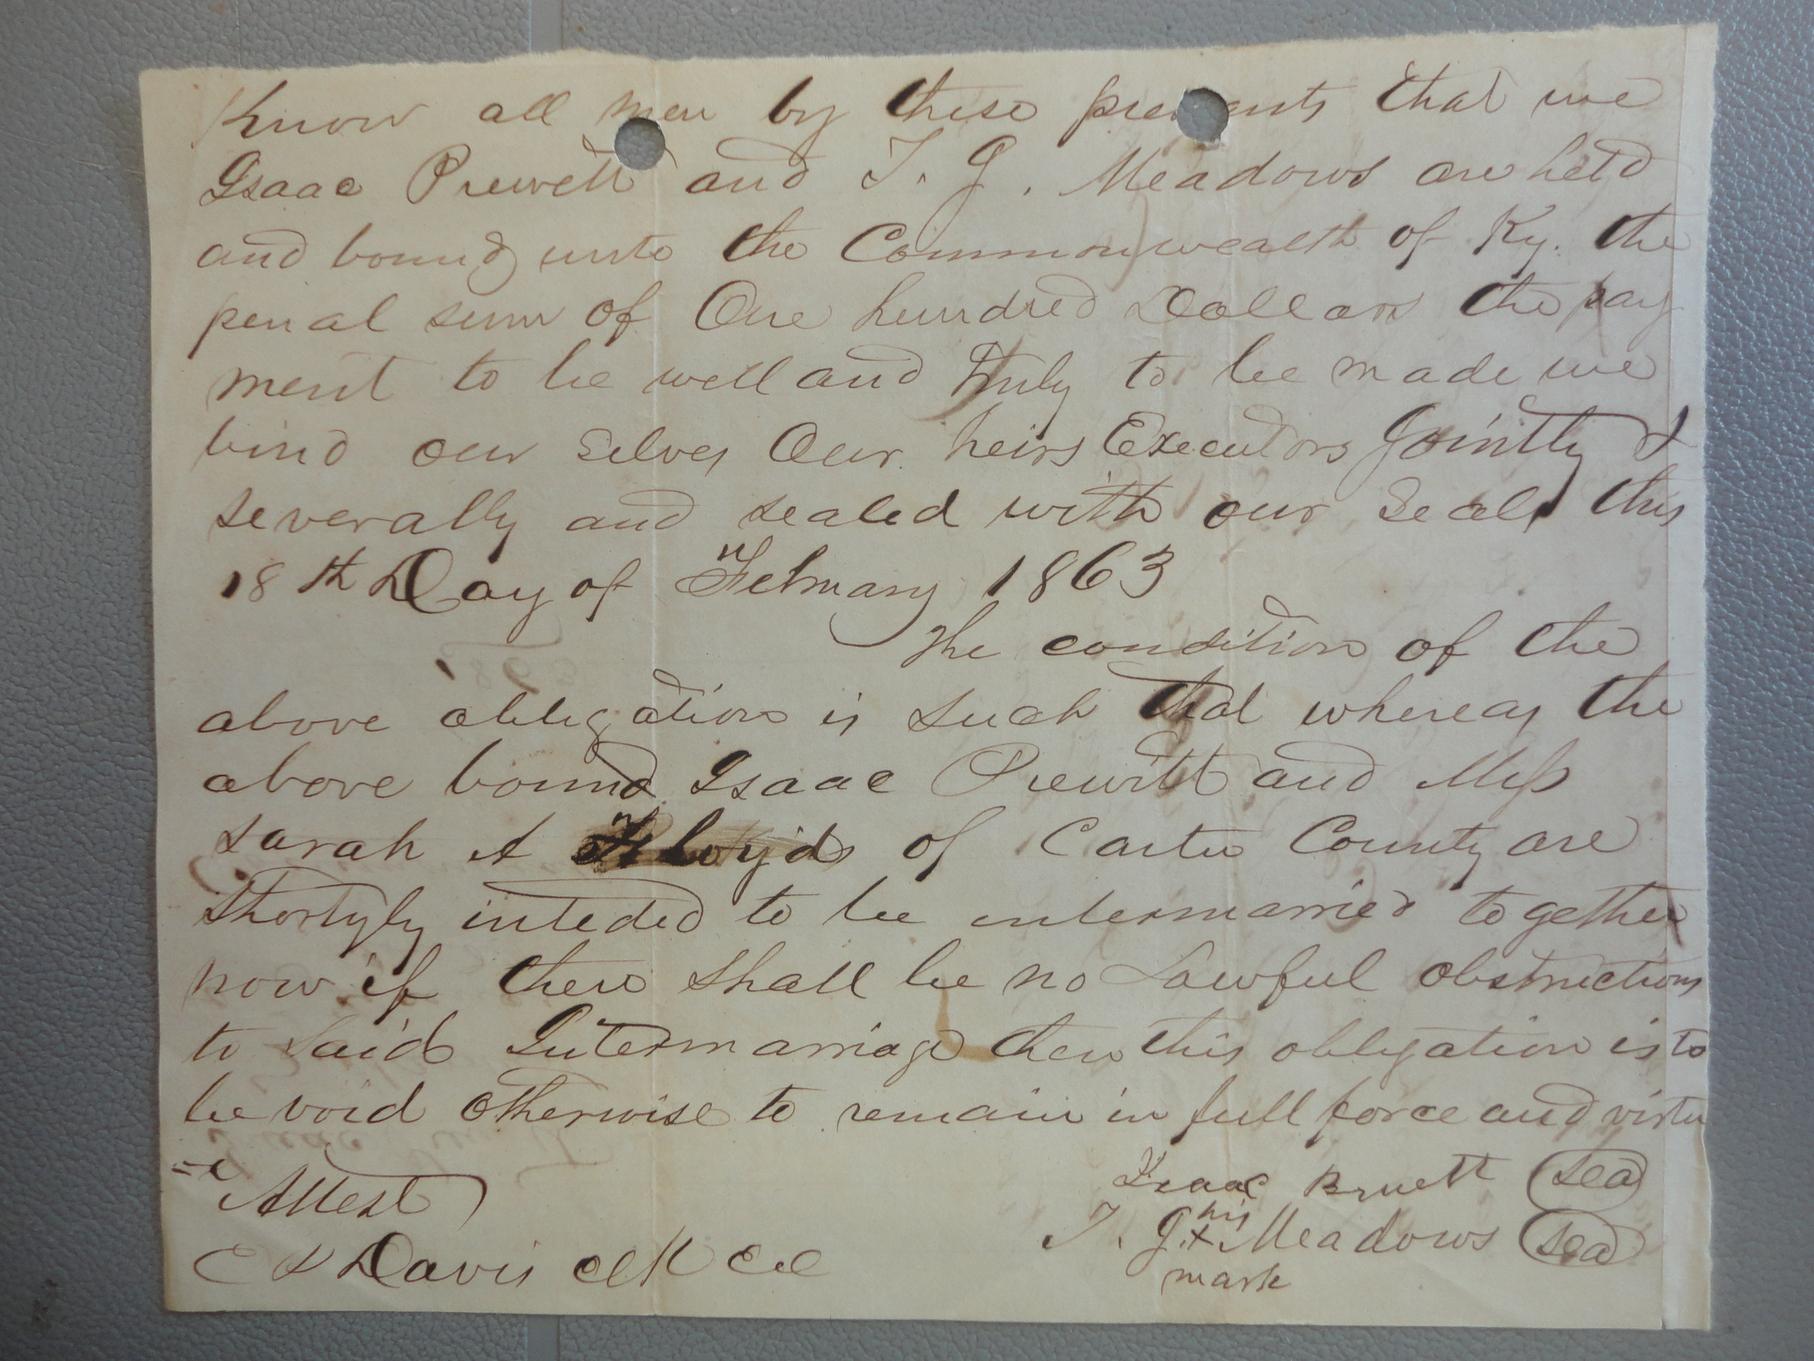 Know all men by these presents that we
Isaac Prewett and T. G. Meadows are held
and bound unto the Commonwealth of Ky. the
penal sum of One hundred Dollars the pay
ment to be well and truly to be made we
bind our selves Our heirs Executors Jointly &
severally and sealed with our Seals this
18th Day of February 1863
The condition of the
above obligation is such that whereas the
above bound Isaac Prewitt and Miss
Sarah A Floyd of Carter County are
Shortyly inteded to be intermarried together
now if there shall be no Lawful obstructions
to said Intermarriage then this obligation is to
be void otherwise to remain in full force and virtu
=e
Attest
Isaac Bruett Seal
T. G. his x mark Meadows Seal
Davis clk